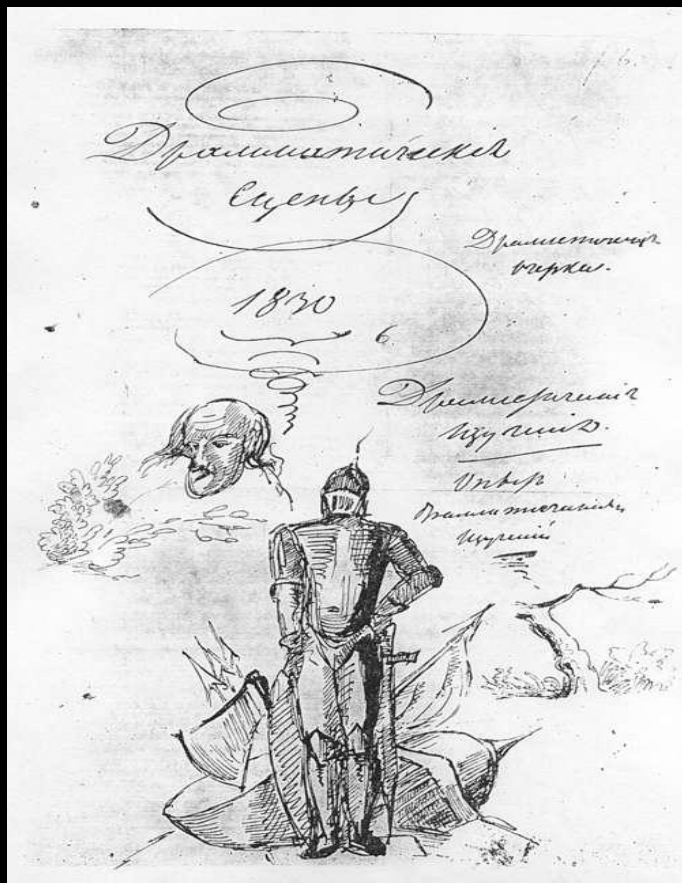 Драмматическiя
Сцены
1830
Драматическiе
очерки.
Драматическiя
изученiя.
Опытъ
драмматическихъ
изученiй